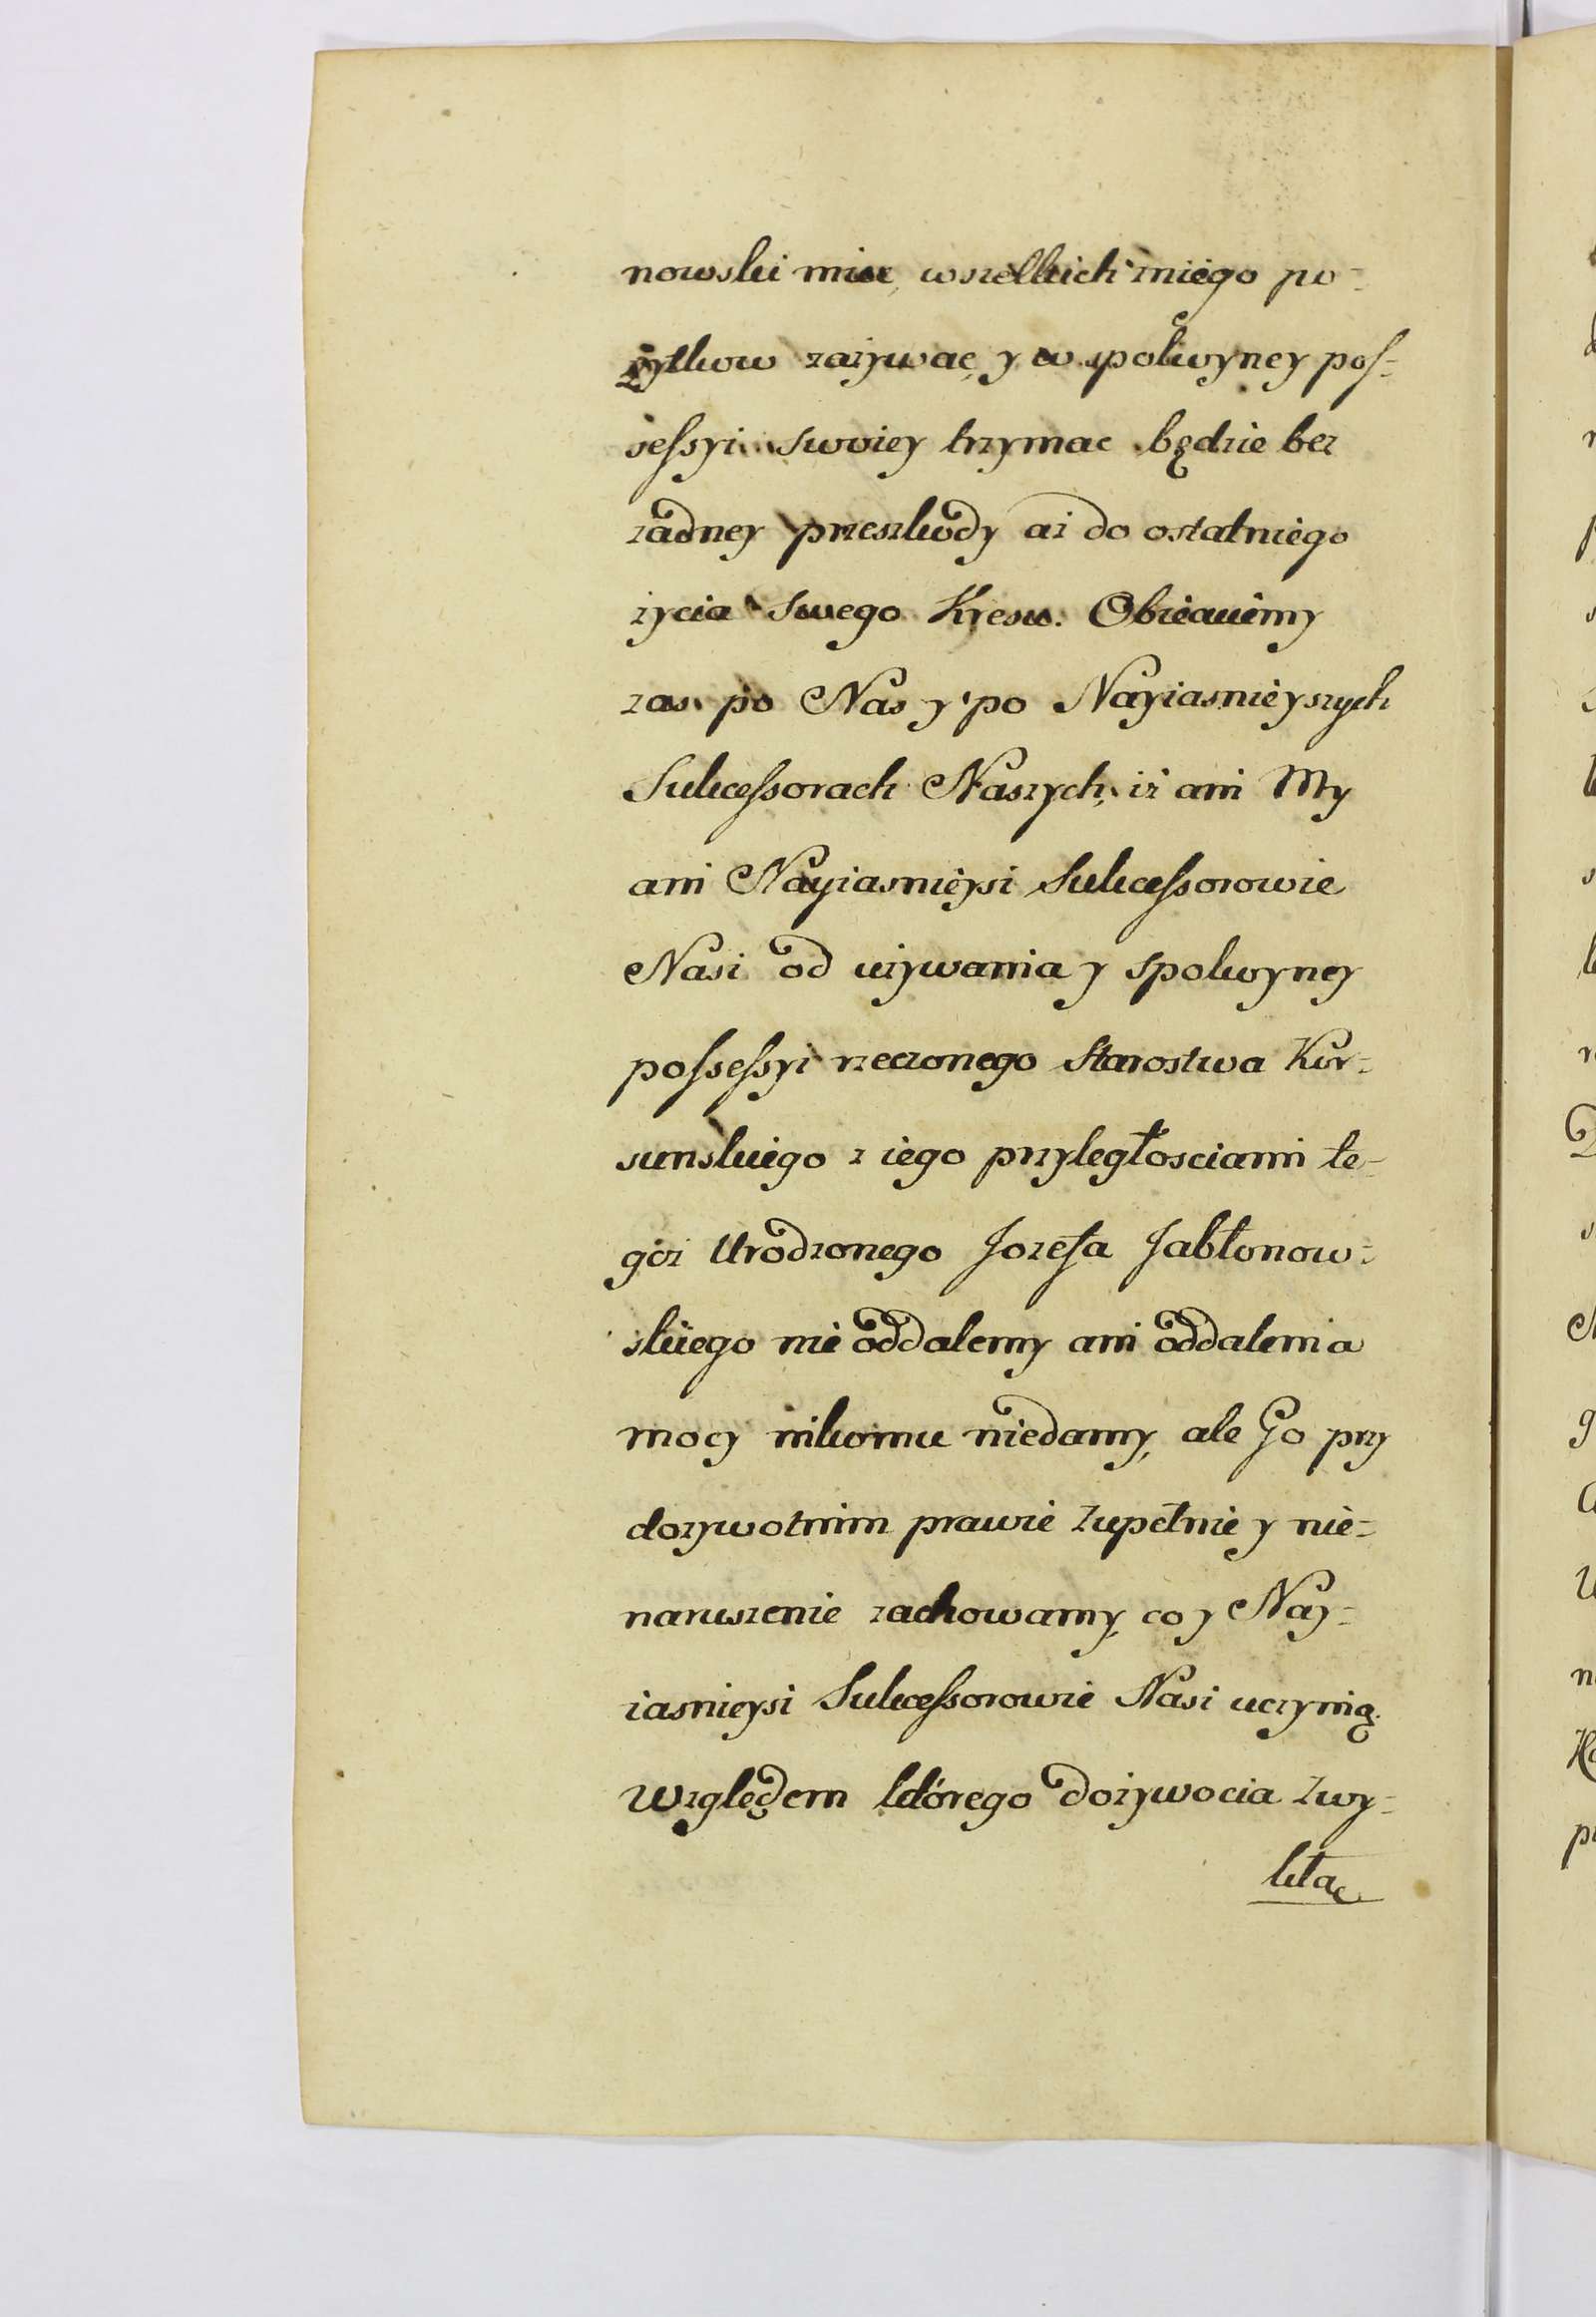 nowski miec, wszelkich zniego po-
zytkow zażywac, y w spokoyney pos-
sessyi swoiey trzymac będzie bez
żadney przeszkody aż do ostatniego
życia swego Kresu. Obiecuiemy
zas po Nas y po Nayiasnieyszych
Sukcessorach Naszych, iż ani My
ani Nayiasnieysi Sukcessorowie
Nasi od używania y spokoyney
possessyi rzeczonego Starostwa Kor-
sunskiego z iego przyległosciami te-
goż Urodzonego Jozefa Jabłonow-
skiego nie oddalemy ani oddalenia
mocy nikomu niedamy, ale Go przy
dożywotnim prawie zupełnie y nie-
naruszenie zachowamy, co y Nay-
iasnieysi Sukcessorowie Nasi uczynią.
Względem którego dożywocia zwy-
kła